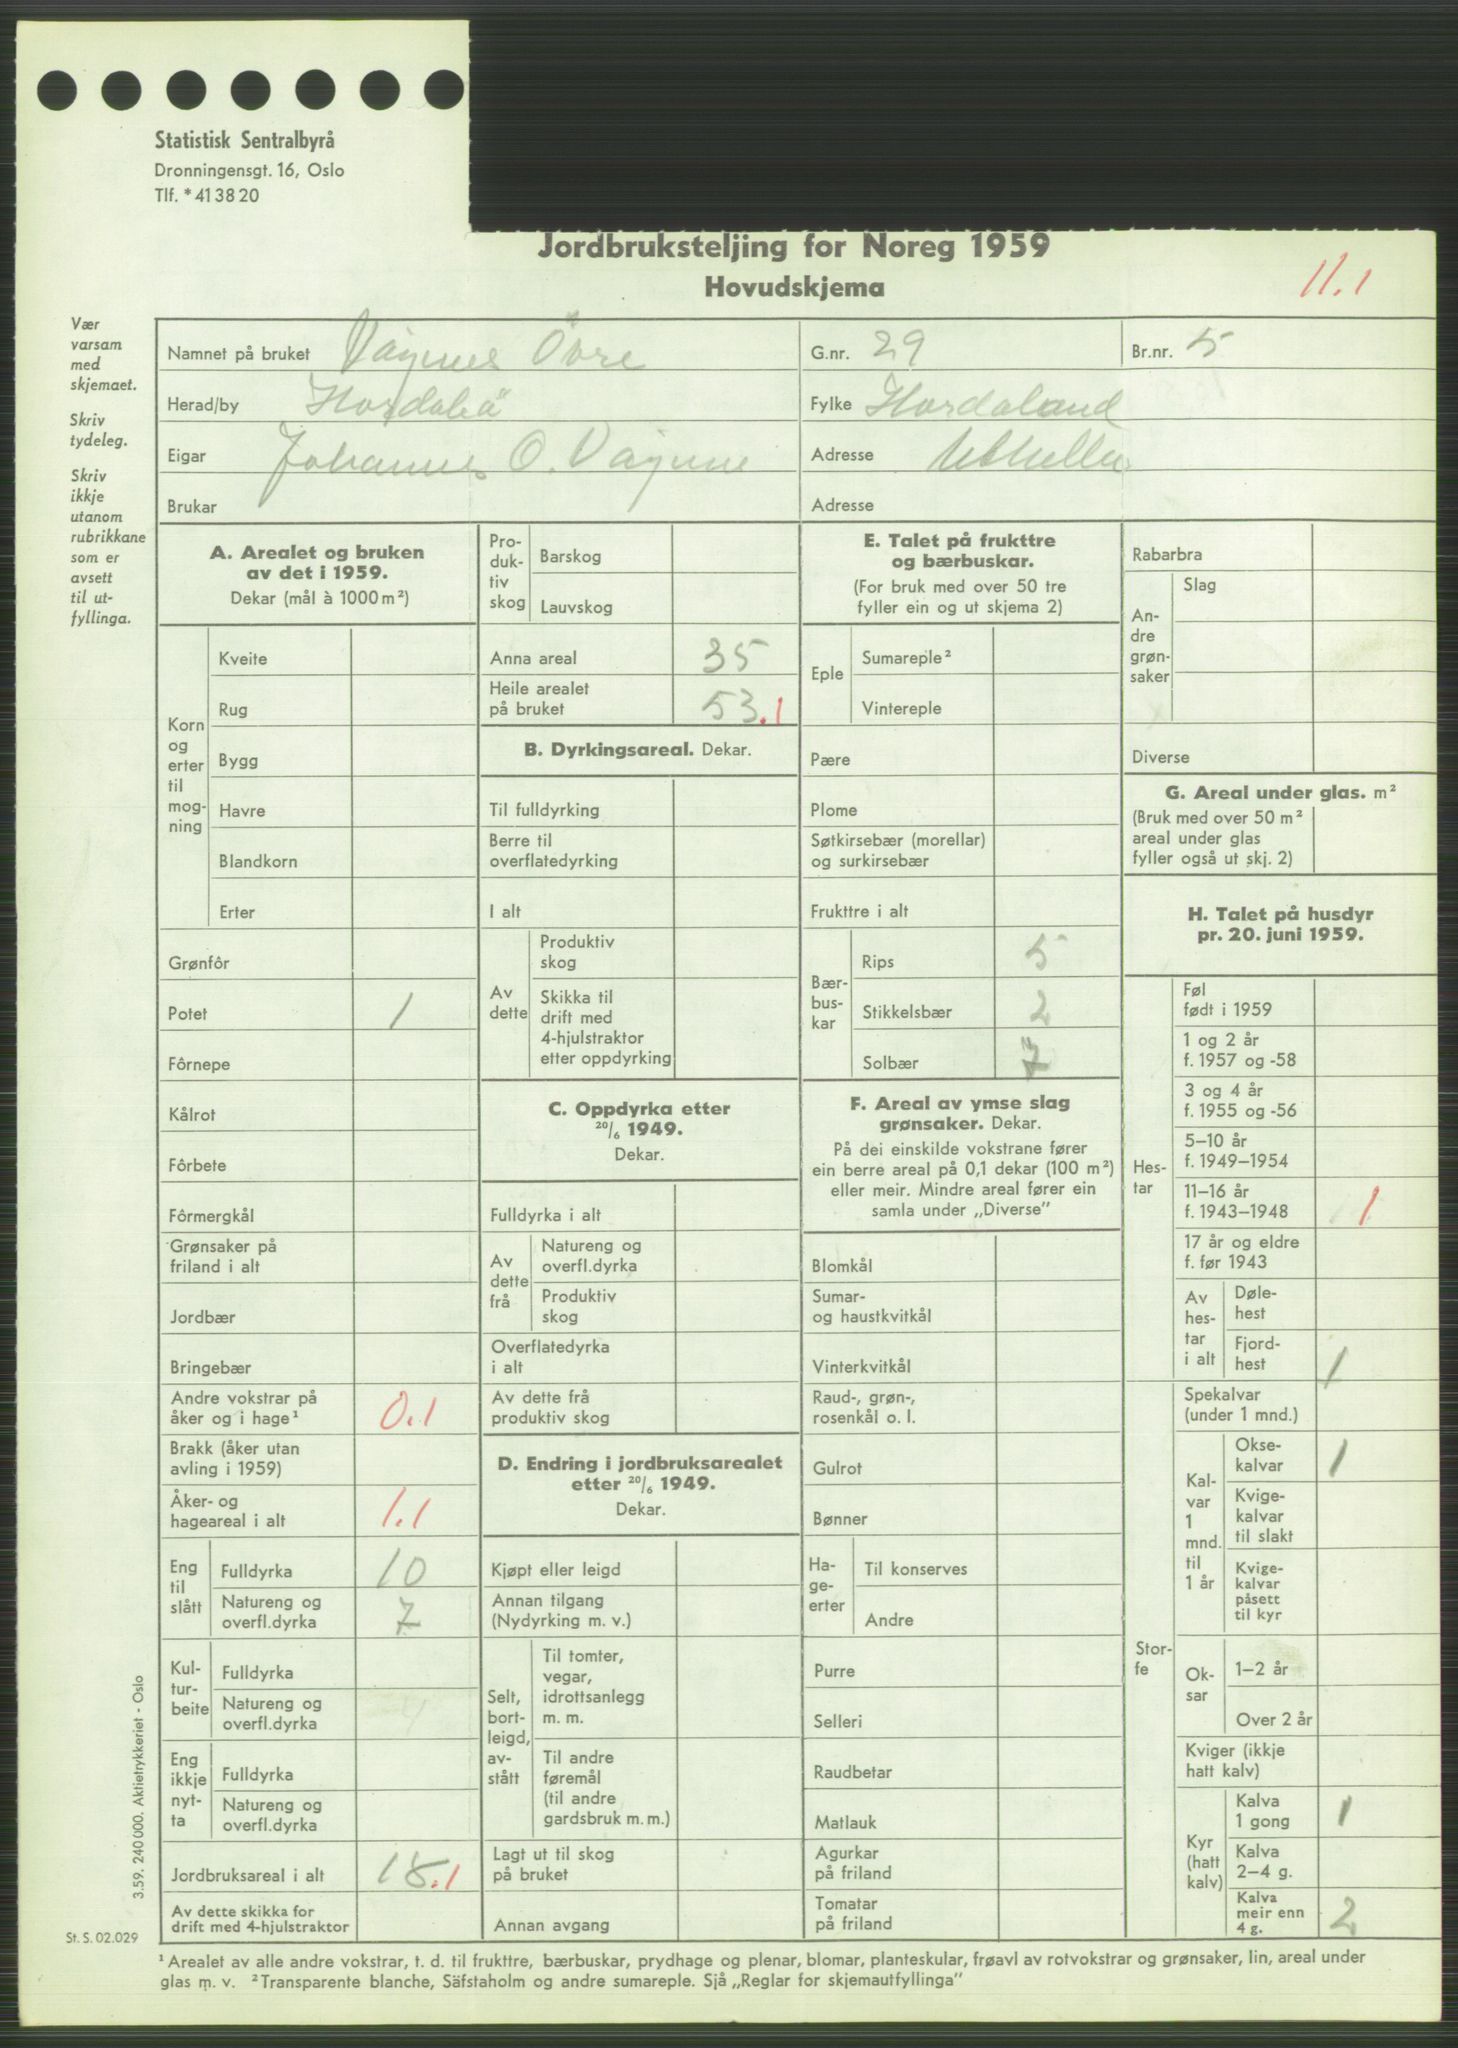 Statistisk Sentralbyrå
Dronningensgt. 16, Oslo
Tlf. * 41 38 20
Jordbruksteljing for Noreg 1959
Hovudskjema
11.1
Vær
varsam
med
skjemaet.
Skriv
tydeleg.
Skriv
ikkje
utanom
rubrikkane
som er
avsett
til ut-
fyllinga.
Namnet på bruket Vågnes Övre G.nr. 29 Br.nr. 5
Herad/by Hordabö Fylke Hordaland
Eigar Johannes O. Adresse
Brukar Adresse
A. Arealet og bruken
av det i 1959.
Dekar (mål à 1000 m²)
Korn
og
erter
til
mog-
ning
Kveite
Rug
Bygg
Havre
Blandkorn
Erter
Grønfôr
Potet 1
Fôrnepe
Kålrot
Fôrbete
Fôrmergkål
Grønsaker på
friland i alt
Jordbær
Bringebær
Andre vokstrar på
åker og i hage¹ 0.1
Brakk (åker utan
avling i 1959)
Åker- og
hageareal i alt 1.1
Eng
til
slått
Fulldyrka 10
Natureng og
overfl.dyrka 7
Kul-
tur-
beite
Fulldyrka
Natureng og
overfl.dyrka
Eng
ikkje
nyt-
ta
Fulldyrka
Natureng og
overfl.dyrka
Jordbruksareal i alt 18.1
Av dette skikka for
drift med 4-hjulstraktor
Pro-
duk-
tiv
skog
Barskog
Lauvskog
Anna areal 35
Heile arealet
på bruket 53.1
B. Dyrkingsareal. Dekar.
Til fulldyrking
Berre til
overflatedyrking
I alt
Av
dette
Produktiv
skog
Skikka til
drift med
4-hjulstraktor
etter oppdyrking
C. Oppdyrka etter
20/6 1949.
Dekar.
Fulldyrka i alt
Av
dette
frå
Natureng og
overfl.dyrka
Produktiv
skog
Overflatedyrka
i alt
Av dette frå
produktiv skog
D. Endring i jordbruksarealet
etter 20/6 1949.
Dekar.
Kjøpt eller leigd
Annan tilgang
(Nydyrking m. v.)
Selt,
bort-
leigd,
av-
stått
Til tomter,
vegar,
idrottsanlegg
m. m.
Til andre
føremål
(til andre
gardsbruk m. m.)
Lagt ut til skog
på bruket
Annan avgang
E. Talet på frukttre
og bærbuskar.
(For bruk med over 50 tre
fyller ein og ut skjema 2)
Eple
Sumareple²
Vintereple
Pære
Plome
Søtkirsebær (morellar)
og surkirsebær
Frukttre i alt
Bær-
bus-
kar
Rips 5
Stikkelsbær 2
Solbær 7
F. Areal av ymse slag
grønsaker. Dekar.
På dei einskilde vokstrane fører
ein berre areal på 0,1 dekar (100 m²)
eller meir. Mindre areal fører ein
samla under „Diverse”
Blomkål
Sumar-
og haustkvitkål
Vinterkvitkål
Raud-, grøn-,
rosenkål o. l.
Gulrot
Bønner
Ha-
ge-
erter
Til konserves
Andre
Purre
Selleri
Raudbetar
Matlauk
Agurkar
på friland
Tomatar
på friland
Rabarbra
An-
dre
grøn-
saker
Slag
Diverse
G. Areal under glas. m²
(Bruk med over 50 m²
areal under glas
fyller også ut skj. 2)
H. Talet på husdyr
pr. 20. juni 1959.
Hes-
tar
Føl
født i 1959
1 og 2 år
f. 1957 og -58
3 og 4 år
f. 1955 og -56
5–10 år
f. 1949–1954
11–16 år
f. 1943–1948 1
17 år og eldre
f. før 1943
Av
hes-
tar
i alt
Døle-
hest
Fjord-
hest 1
Stor-
fe
Spekalvar
(under 1 mnd.)
Kal-
var
1
mnd.
til
1 år
Okse-
kalvar 1
Kvige-
kalvar
til slakt
Kvige-
kalvar
påsett
til kyr
Ok-
sar
1–2 år
Over 2 år
Kviger (ikkje
hatt kalv)
Kyr
(hatt
kalv)
Kalva
1 gong 1
Kalva
2–4 g.
Kalva
meir enn
4 g. 2
3.59. 240 000. Aktietrykkeriet - Oslo
St. S. 02.029
¹ Arealet av alle andre vokstrar, t. d. til frukttre, bærbuskar, prydhage og plenar, blomar, planteskular, frøavl av rotvokstrar og grønsaker, lin, areal under
glas m. v. ² Transparente blanche, Säfstaholm og andre sumareple. Sjå „Reglar for skjemautfyllinga”